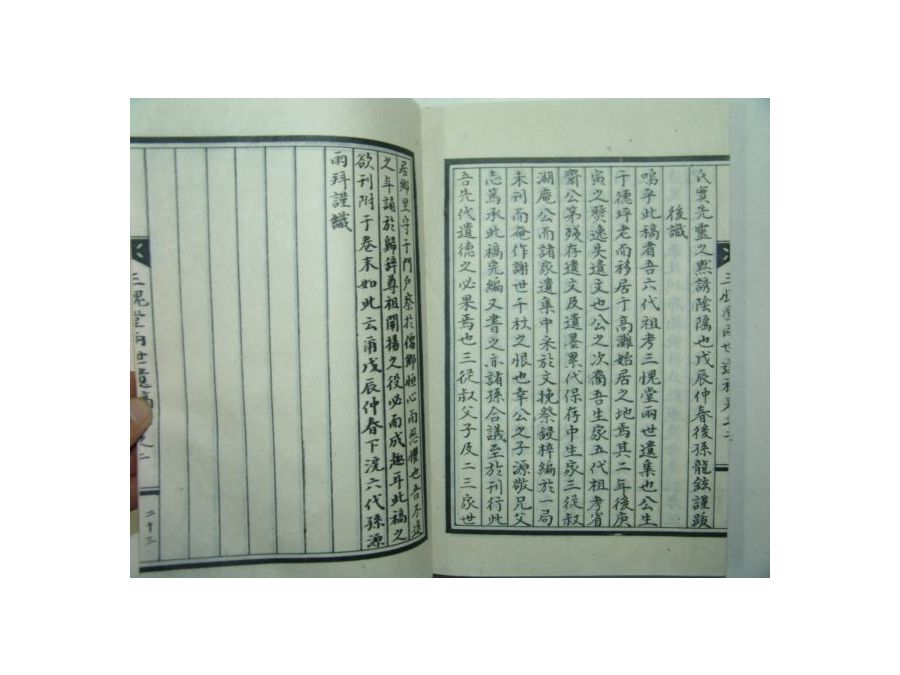 氏實先靈之黙誘陰隲也戊辰仲春後孫龍鉉謹跋
後識
嗚乎此稿者吾六代祖考三愧堂兩世遺集也公生
于德坪老而移居于高灘始居之地焉其二年後庚
寅之燹逸失遺文也公之次裔吾生家五代祖考省
齋公第殘存遺文及遺墨累代保存中生家三從叔
湖庵公而諸家遺集中采於文挽祭錽梓編於一局
未刊而奄作謝世千秋之恨也幸公之子源敬兄父
志篤承此稿完編又書之亦諸孫合議至於刊行此
吾先代遺德之必果焉也三從叔父子及二三家世
居鄉里守于門戶察於儒鄉恒心而慈懼也吾不遠
之年誦於歸辞尊祖闡揚之役必而成趣耳此稿之
欲刊附于卷末如此云爾戊辰仲春下浣六代孫源
雨拜謹識
三愧堂兩世遺稿卷之二
二十三